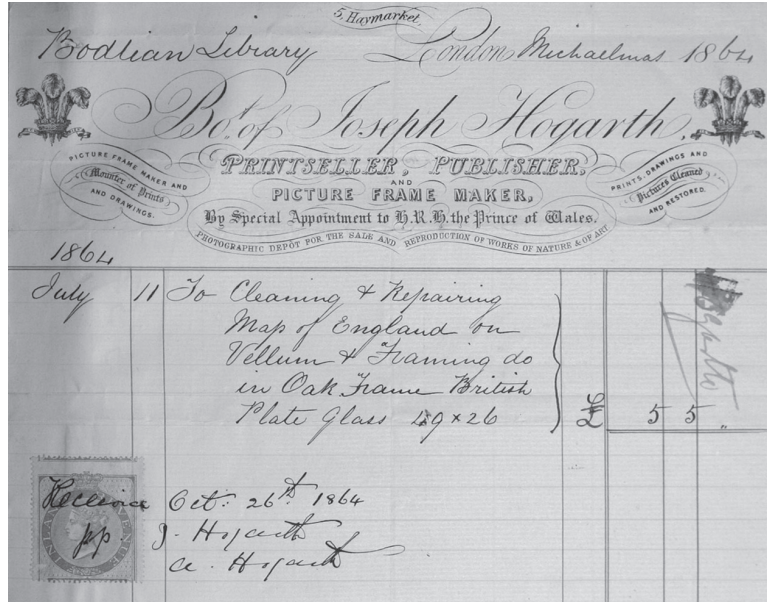 5, Haymarket
Bodlian Library London Michaelmas 1864
Bot. of Joseph Hogarth,
PRINTSELLER, PUBLISHER,
AND
PICTURE FRAME MAKER,
By Special Appointment to H.R.H. the Prince of Wales.
PHOTOGRAPHIC DEPOT FOR THE SALE AND REPRODUCTION OF WORKS OF NATURE & OF ART
PICTURE FRAME MAKER AND
Mounter of Prints
AND DRAWINGS.
PRINTS, DRAWINGS AND
Pictures Cleaned
AND RESTORED.
1864
July 11 To Cleaning & Repairing
Map of England on
Vellum & Framing do
in Oak Frame British
Plate Glass 49 x 26 £ 5 5 "
Hogarth
Received Oct: 26th 1864
pp J. Hogarth
a. Hogarth